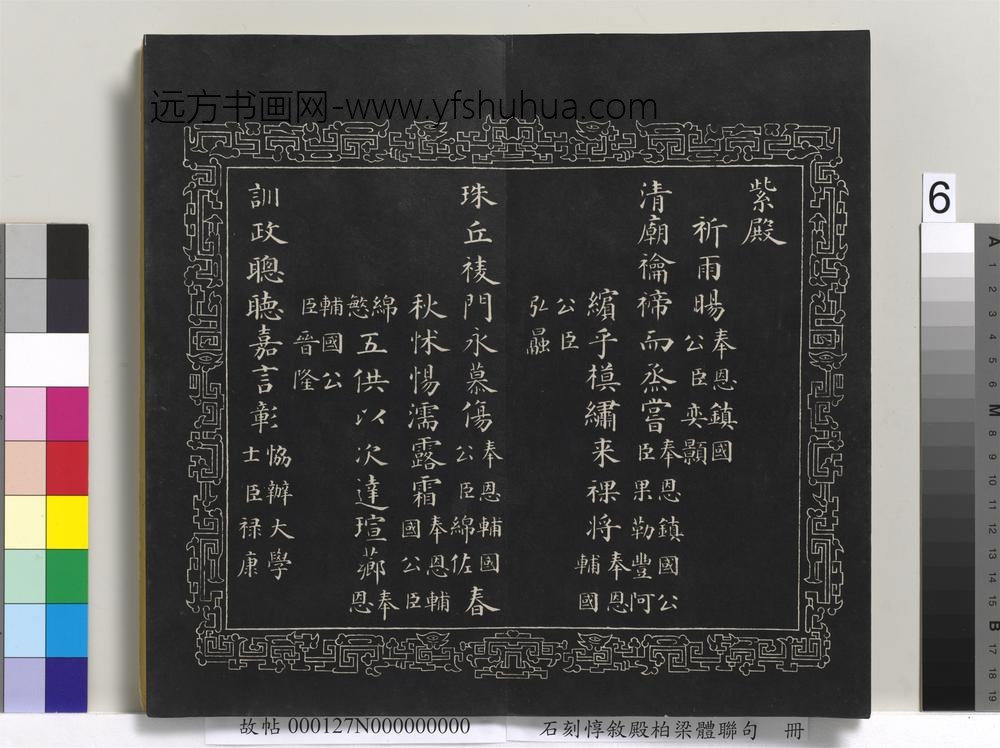 远方书画网-www.yfshuhua.com
紫殿
祈雨暘奉恩鎮國
公臣奕顥
清廟禴禘而烝嘗奉恩鎮國公
臣果勒豐阿
繽乎模繡来祼将奉恩
輔國
公臣
弘融
珠丘祾門永慕傷奉恩輔國
公臣綿佐春
秋怵惕濡露霜奉恩輔
國公臣
綿
慜五供以次達瑄薌奉
恩
輔國公
臣晉隆
訓政聰聽嘉言彰協辦大學
士臣禄康
6
A
1
2
3
4
5
6
M
8
9
10
11
12
13
14
15
B
17
18
19
故帖 000127N000000000
石刻惇敘殿柏梁體聯句 冊